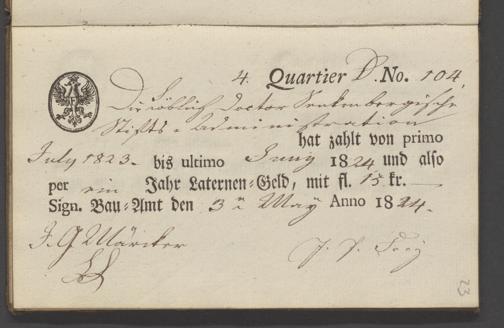 4. Quartier D. No. 104.
Die Löblich Doctor Senkenbergische
Stifts-Administration
hat zahlt von primo
July 1823. bis ultimo Juny 1824 und also
per ein Jahr Laternen-Geld, mit fl. 15 kr. —
Sign. Bau-Amt den 3n May Anno 1824.
J. G. Märcker
23